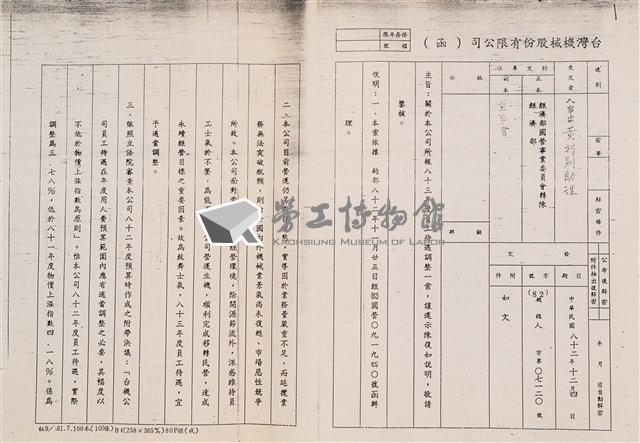 台灣機械股份有限公司（函）
保存年限
檔號
速別
密等
解密條件
公布後解密
附件抽出後解密
年　月　日自動解密
受文者
人事室黃特別助理
行文單位
正本
經濟部國營事業委員會轉陳
經濟部
副本
發文
日期
中華民國八十二年十二月四日
字號
(82)總人字第〇七一二〇號
附件
如文
批示
擬辦
主旨：關於本公司所報八十三年度員工待遇調整一案，謹遵示陳復如說明，敬請
鑒核。
說明：一、本案依據　鈞部八十二年十一月廿五日經(82)國營〇九一九四〇號函辦
理。
二、本公司目前營運仍
實導因於業務量嚴重不足，而延攬業
務無法突破瓶頸，則
國內外機械業景氣尚未復甦、市場惡性競爭
所致。本公司面對
經營環境，除開源節流外，深感維持員
工士氣於不墜，為能
公司營運生機，順利完成移轉民營，達成
永續經營目標之重要因素。故為鼓舞士氣，八十三年度員工待遇，宜
予適當調整。
三、依照立法院審查本公司八十二年度預算時作成之附帶決議：「台機公
司員工待遇在年度用人費預算範圍內應有適當調整之必要，其幅度以
不低於物價上漲指數為原則」。惟本公司八十二年度員工待遇，實際
調整為三．七八％，低於八十一年度物價上漲指數四．一八％。係為
勞工博物館
KAOHSIUNG MUSEUM OF LABOR